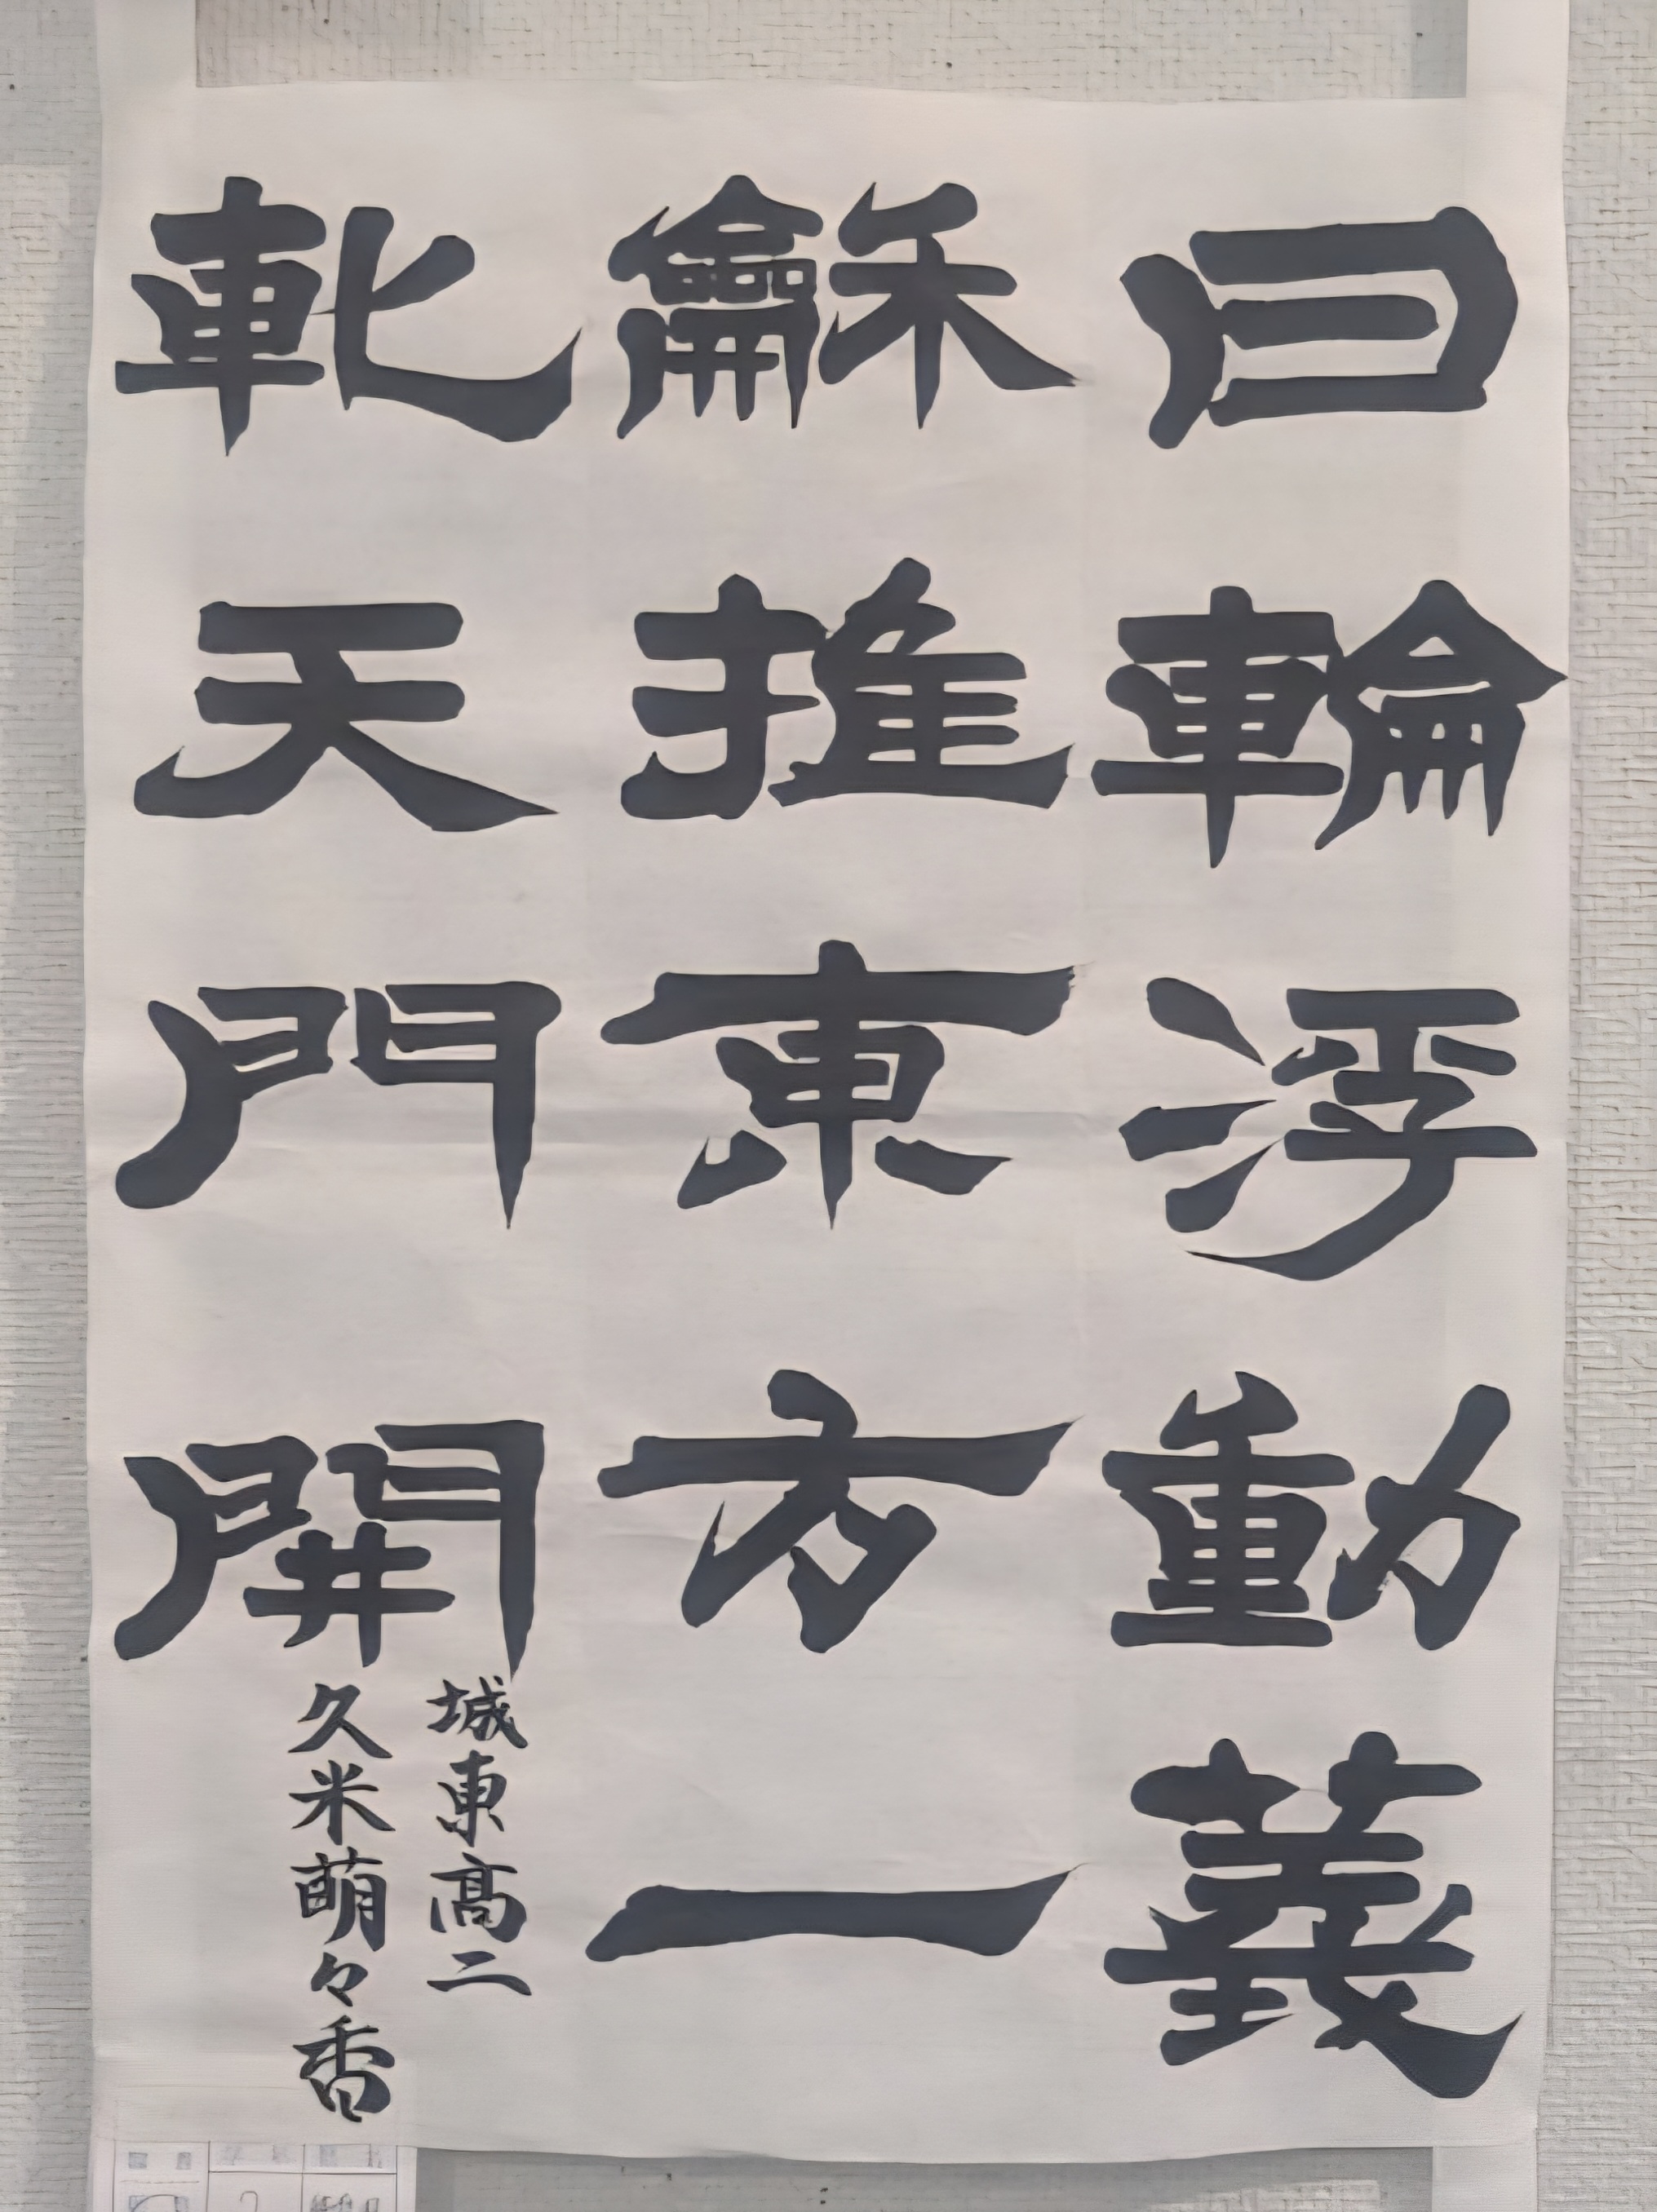 日輪浮動羲
龢推東方一
軋天門開
城東高二
久米萌々香